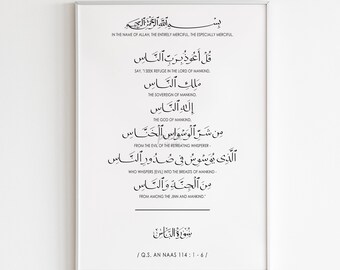 بِسْمِ ٱللَّهِ ٱلرَّحْمَٰنِ ٱلرَّحِيمِ
IN THE NAME OF ALLAH, THE ENTIRELY MERCIFUL, THE ESPECIALLY MERCIFUL.
قُلْ أَعُوذُ بِرَبِّ ٱلنَّاسِ
SAY, "I SEEK REFUGE IN THE LORD OF MANKIND,
مَلِكِ ٱلنَّاسِ
THE SOVEREIGN OF MANKIND.
إِلَٰهِ ٱلنَّاسِ
THE GOD OF MANKIND,
مِن شَرِّ ٱلْوَسْوَاسِ ٱلْخَنَّاسِ
FROM THE EVIL OF THE RETREATING WHISPERER -
ٱلَّذِى يُوَسْوِسُ فِى صُدُورِ ٱلنَّاسِ
WHO WHISPERS [EVIL] INTO THE BREASTS OF MANKIND -
مِنَ ٱلْجِنَّةِ وَٱلنَّاسِ
FROM AMONG THE JINN AND MANKIND."
سُورَةُ ٱلنَّاسِ
/ Q.S. AN NAAS 114 : 1 - 6 /